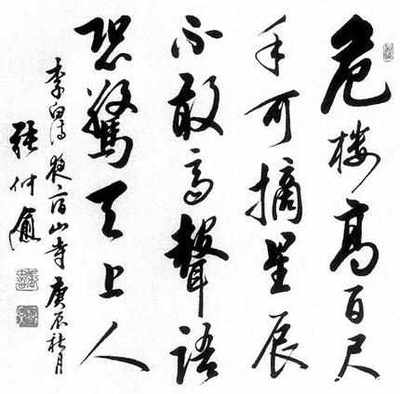 危楼高百尺
手可摘星辰
不敢高聲語
恐驚天上人
李白詩夜宿山寺 庚辰秋月
張仲愈